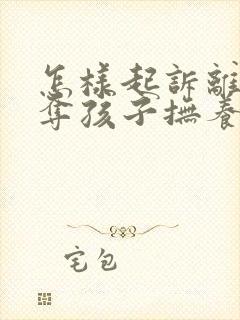 怎樣起訴離
奪孩子撫養
宅包